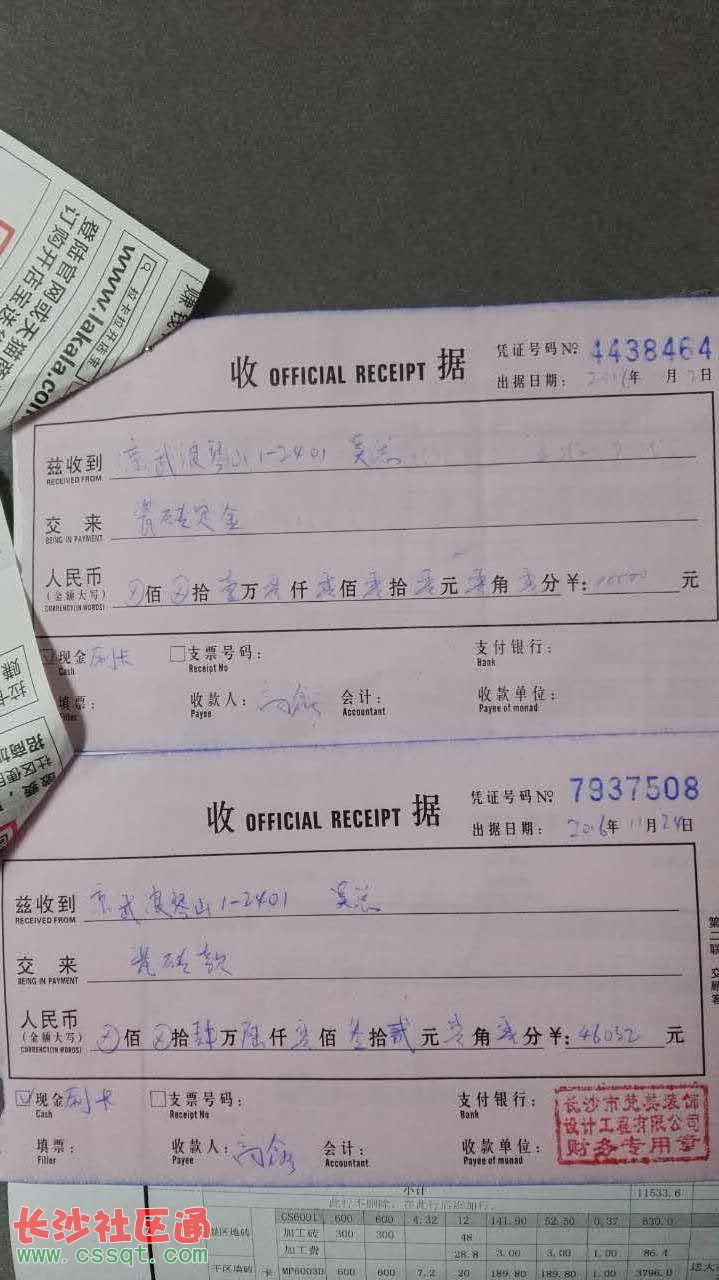 登陆官网或天猫商
订购开店宝送
www.lakala.com
拉卡拉开店宝
赚
收 OFFICIAL RECEIPT 据
凭证号码№ 4438464
出据日期: 2016年 月2日
兹收到 京武浪琴山1-2401 莫总
RECEIVED FROM
交来 瓷砖定金
BEING IN PAYMENT
人民币 佰 拾壹万零仟零佰零拾零元零角零分¥: 10000 元
(金额大写)
CURRENCY(IN WORDS)
现金 刷卡 支票号码: 支付银行:
Cash Receipt No Bank
填票: 收款人: 会计: 收款单位:
Filler Payee Accountant Payee of monad
拉卡
赚
招商加
社区便
缴费,
收 OFFICIAL RECEIPT 据
凭证号码№ 7937508
出据日期: 2016年11月24日
兹收到 京武浪琴山1-2401 莫总
RECEIVED FROM
交来 瓷砖款
BEING IN PAYMENT
人民币 佰 拾肆万陆仟零佰叁拾贰元零角零分¥: 46032 元
(金额大写)
CURRENCY(IN WORDS)
第二联 交顾客
现金 刷卡 支票号码: 支付银行:
Cash Receipt No Bank
填票: 收款人: 会计: 收款单位:
Filler Payee Accountant Payee of monad
长沙市梵英装饰
设计工程有限公司
财务专用章
小计 11533.6
此行不删除,在此行后添加行。
GS6001 600 600 4.32 12 141.90 52.50 0.37 630.0
地砖 加工砖 300 300 48
加工费 28.8 3.00 3.00 1.00 86.4
干区墙砖 卡 MP6003D 600 600 7.2 20 189.80 189.80 1.00 3796.0 送大
长沙社区通
www.cssqt.com